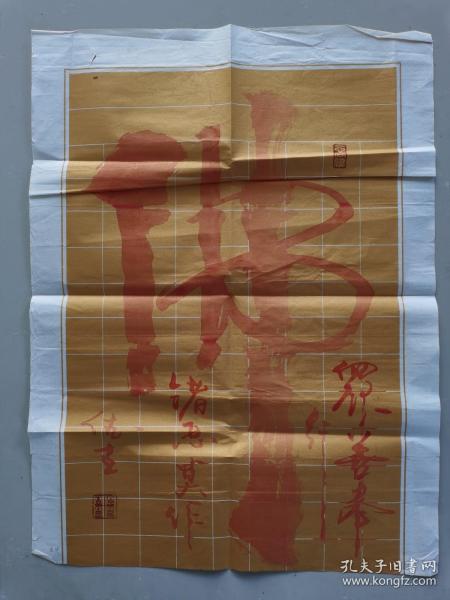 佛
眾善奉
行
諸惡莫作
孔夫子旧书网
www.kongfz.com